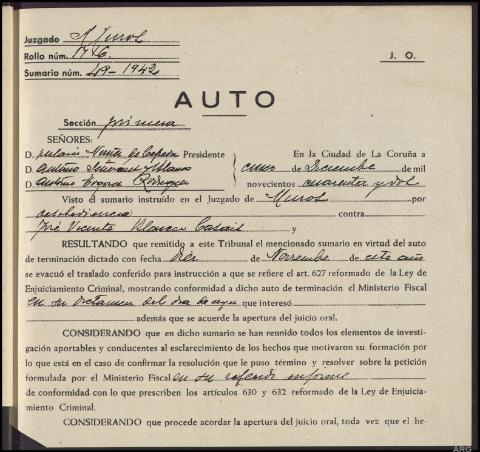 Juzgado Muros
Rollo núm. 1746
Sumario núm. 49-1942
J. O.
AUTO
Sección primera
SEÑORES:
D. Presidente
D. Antonio
D. Antonio
En la Ciudad de La Coruña a
cinco de Diciembre de mil
novecientos cuarenta y dos
Visto el sumario instruído en el Juzgado de Muros por
desobediencia contra
José Vicente Blanco Casais y
RESULTANDO que remitido a este Tribunal el mencionado sumario en virtud del auto
de terminación dictado con fecha diez de Noviembre de este año
se evacuó el traslado conferido para instrucción a que se refiere el art. 627 reformado de la Ley de
Enjuiciamiento Criminal, mostrando conformidad a dicho auto de terminación el Ministerio Fiscal
en su dictamen del día de ayer que interesó
además que se acuerde la apertura del juicio oral.
CONSIDERANDO que en dicho sumario se han reunido todos los elementos de investi-
gación aportables y conducentes al esclarecimiento de los hechos que motivaron su formación por
lo que está en el caso de confirmar la resolución que le puso término y resolver sobre la petición
formulada por el Ministerio Fiscal en su referido informe
de conformidad con lo que prescriben los artículos 630 y 632 reformado de la Ley de Enjuicia-
miento Criminal.
CONSIDERANDO que procede acordar la apertura del juicio oral, toda vez que el he-
ARG